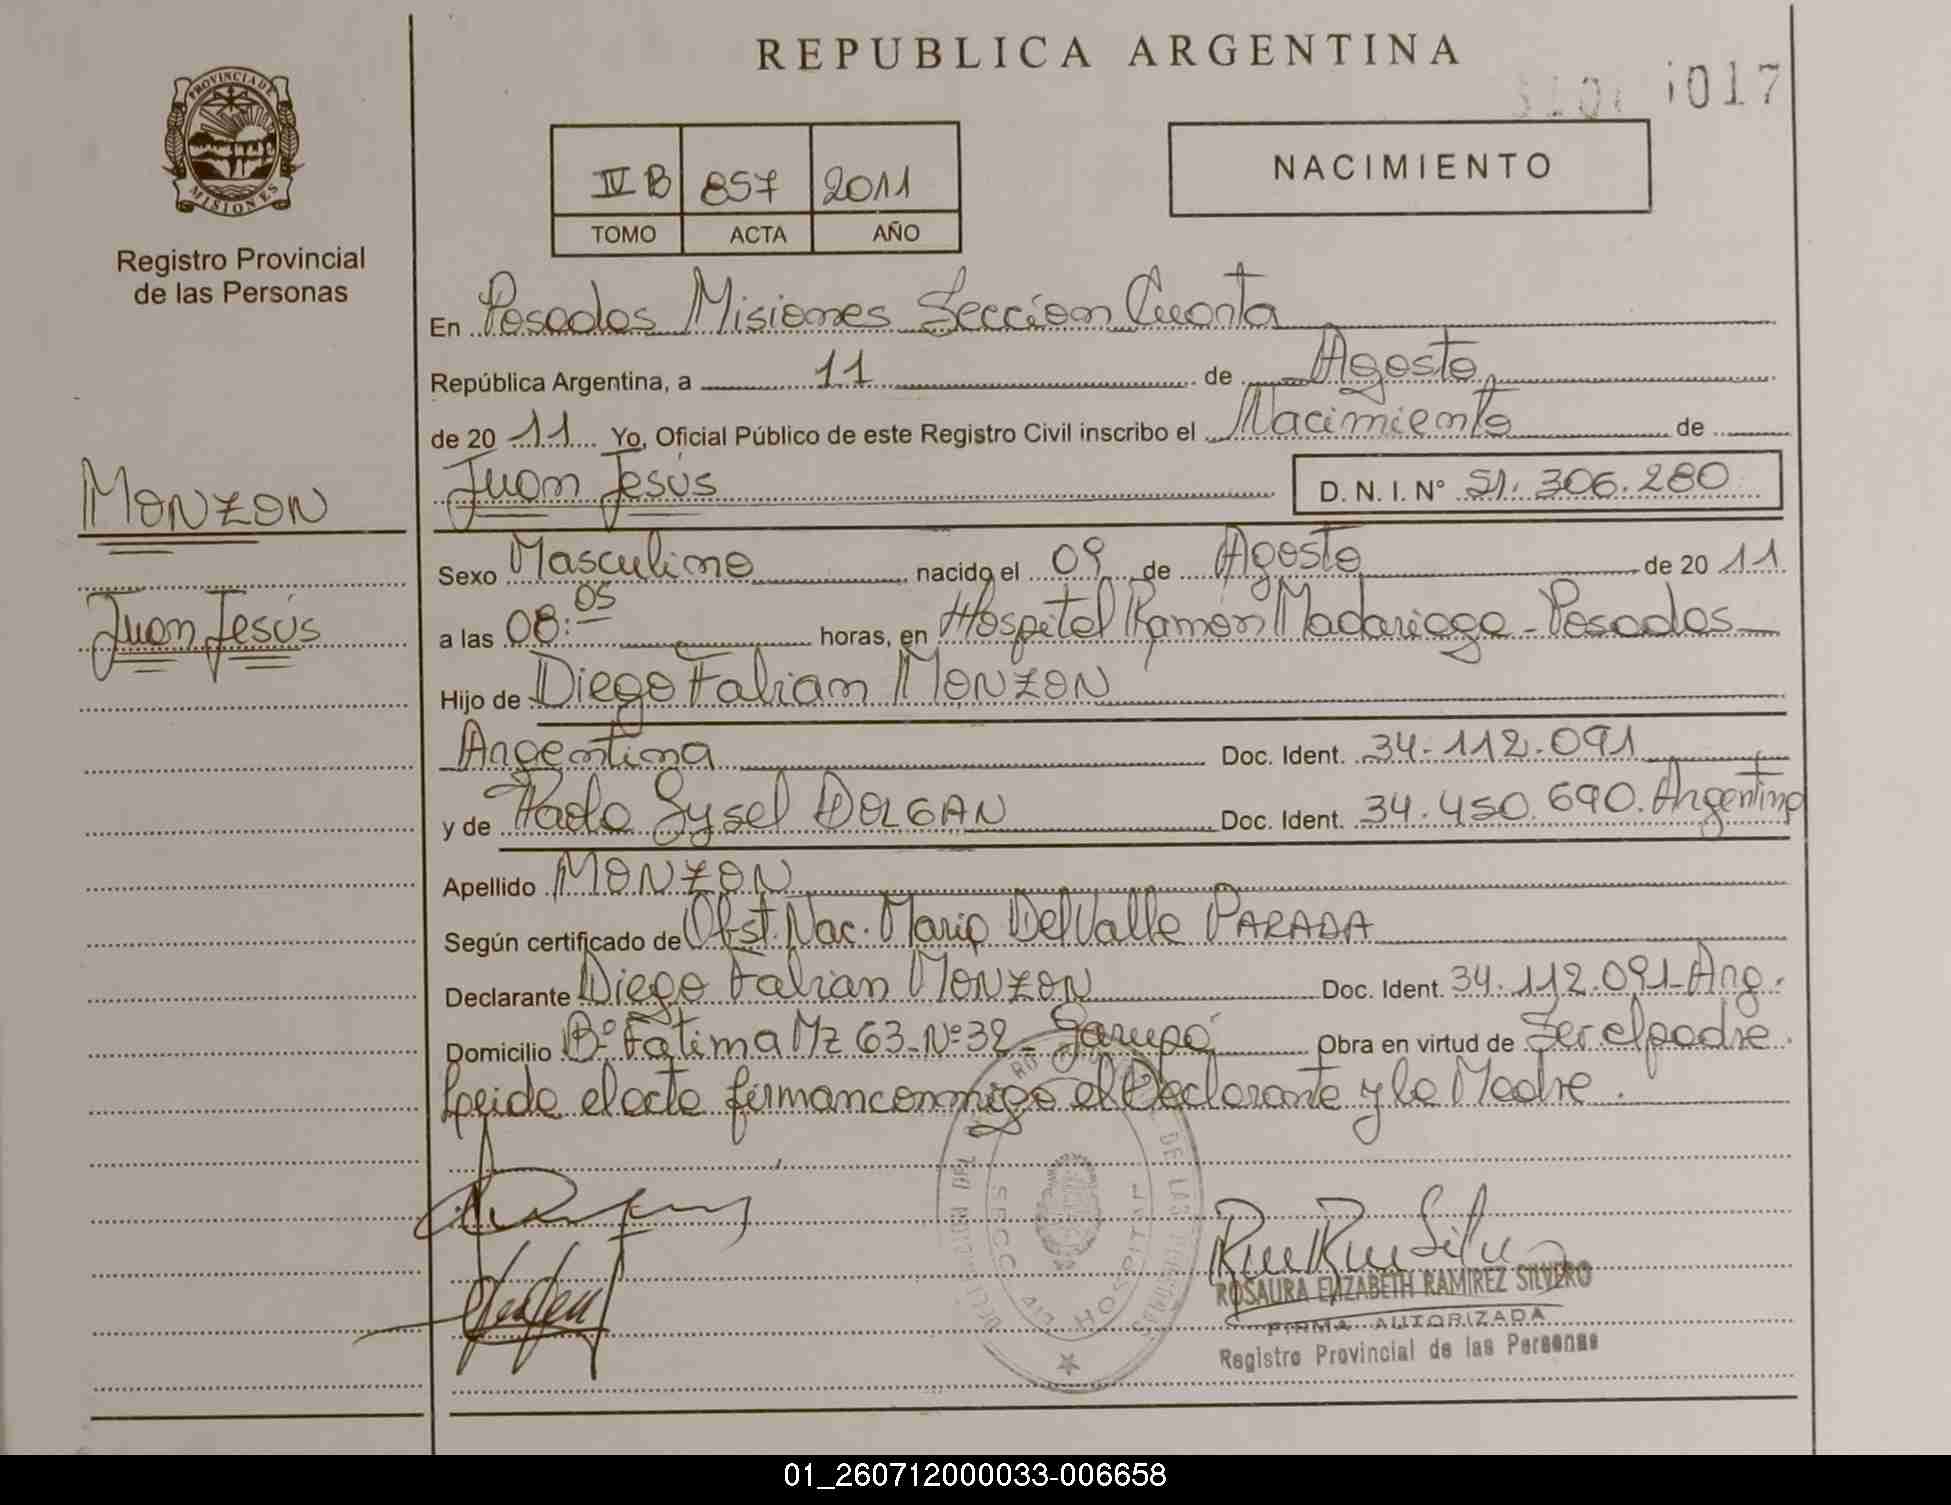 REPUBLICA ARGENTINA
1017
PROVINCIA DE
MISIONES
Registro Provincial
de las Personas
IV B 857 2011
TOMO ACTA AÑO
NACIMIENTO
En Posadas Misiones Seccion Cuarta
República Argentina, a 11 de Agosto
de 20 11 Yo, Oficial Público de este Registro Civil inscribo el Nacimiento de
Juan Jesús D. N. I. N° 51.306.280
MONZON
Sexo Masculino nacido el 09 de Agosto de 20 11
Juan Jesús
a las 08:05 horas, en Hospital Ramón Madariaga - Posadas
Hijo de Diego Fabian MONZON
Argentina Doc. Ident. 34.112.091
y de Gysel DOLGAN Doc. Ident. 34.450.690. Argentina
Apellido MONZON
Según certificado de Obst. Nac. Maria Del Valle PARADA
Declarante Diego Fabian MONZON Doc. Ident. 34.112.091-Arg.
Domicilio B° Fatima Mz 63-N°32- Garupá Obra en virtud de Ser el padre.
Leida el acta firman conmigo el Declarante y la Madre.
SECC. 4ta HOSPITAL
ROSAURA ELIZABETH RAMIREZ SILVERO
FIRMA AUTORIZADA
Registro Provincial de las Personas
01_260712000033-006658